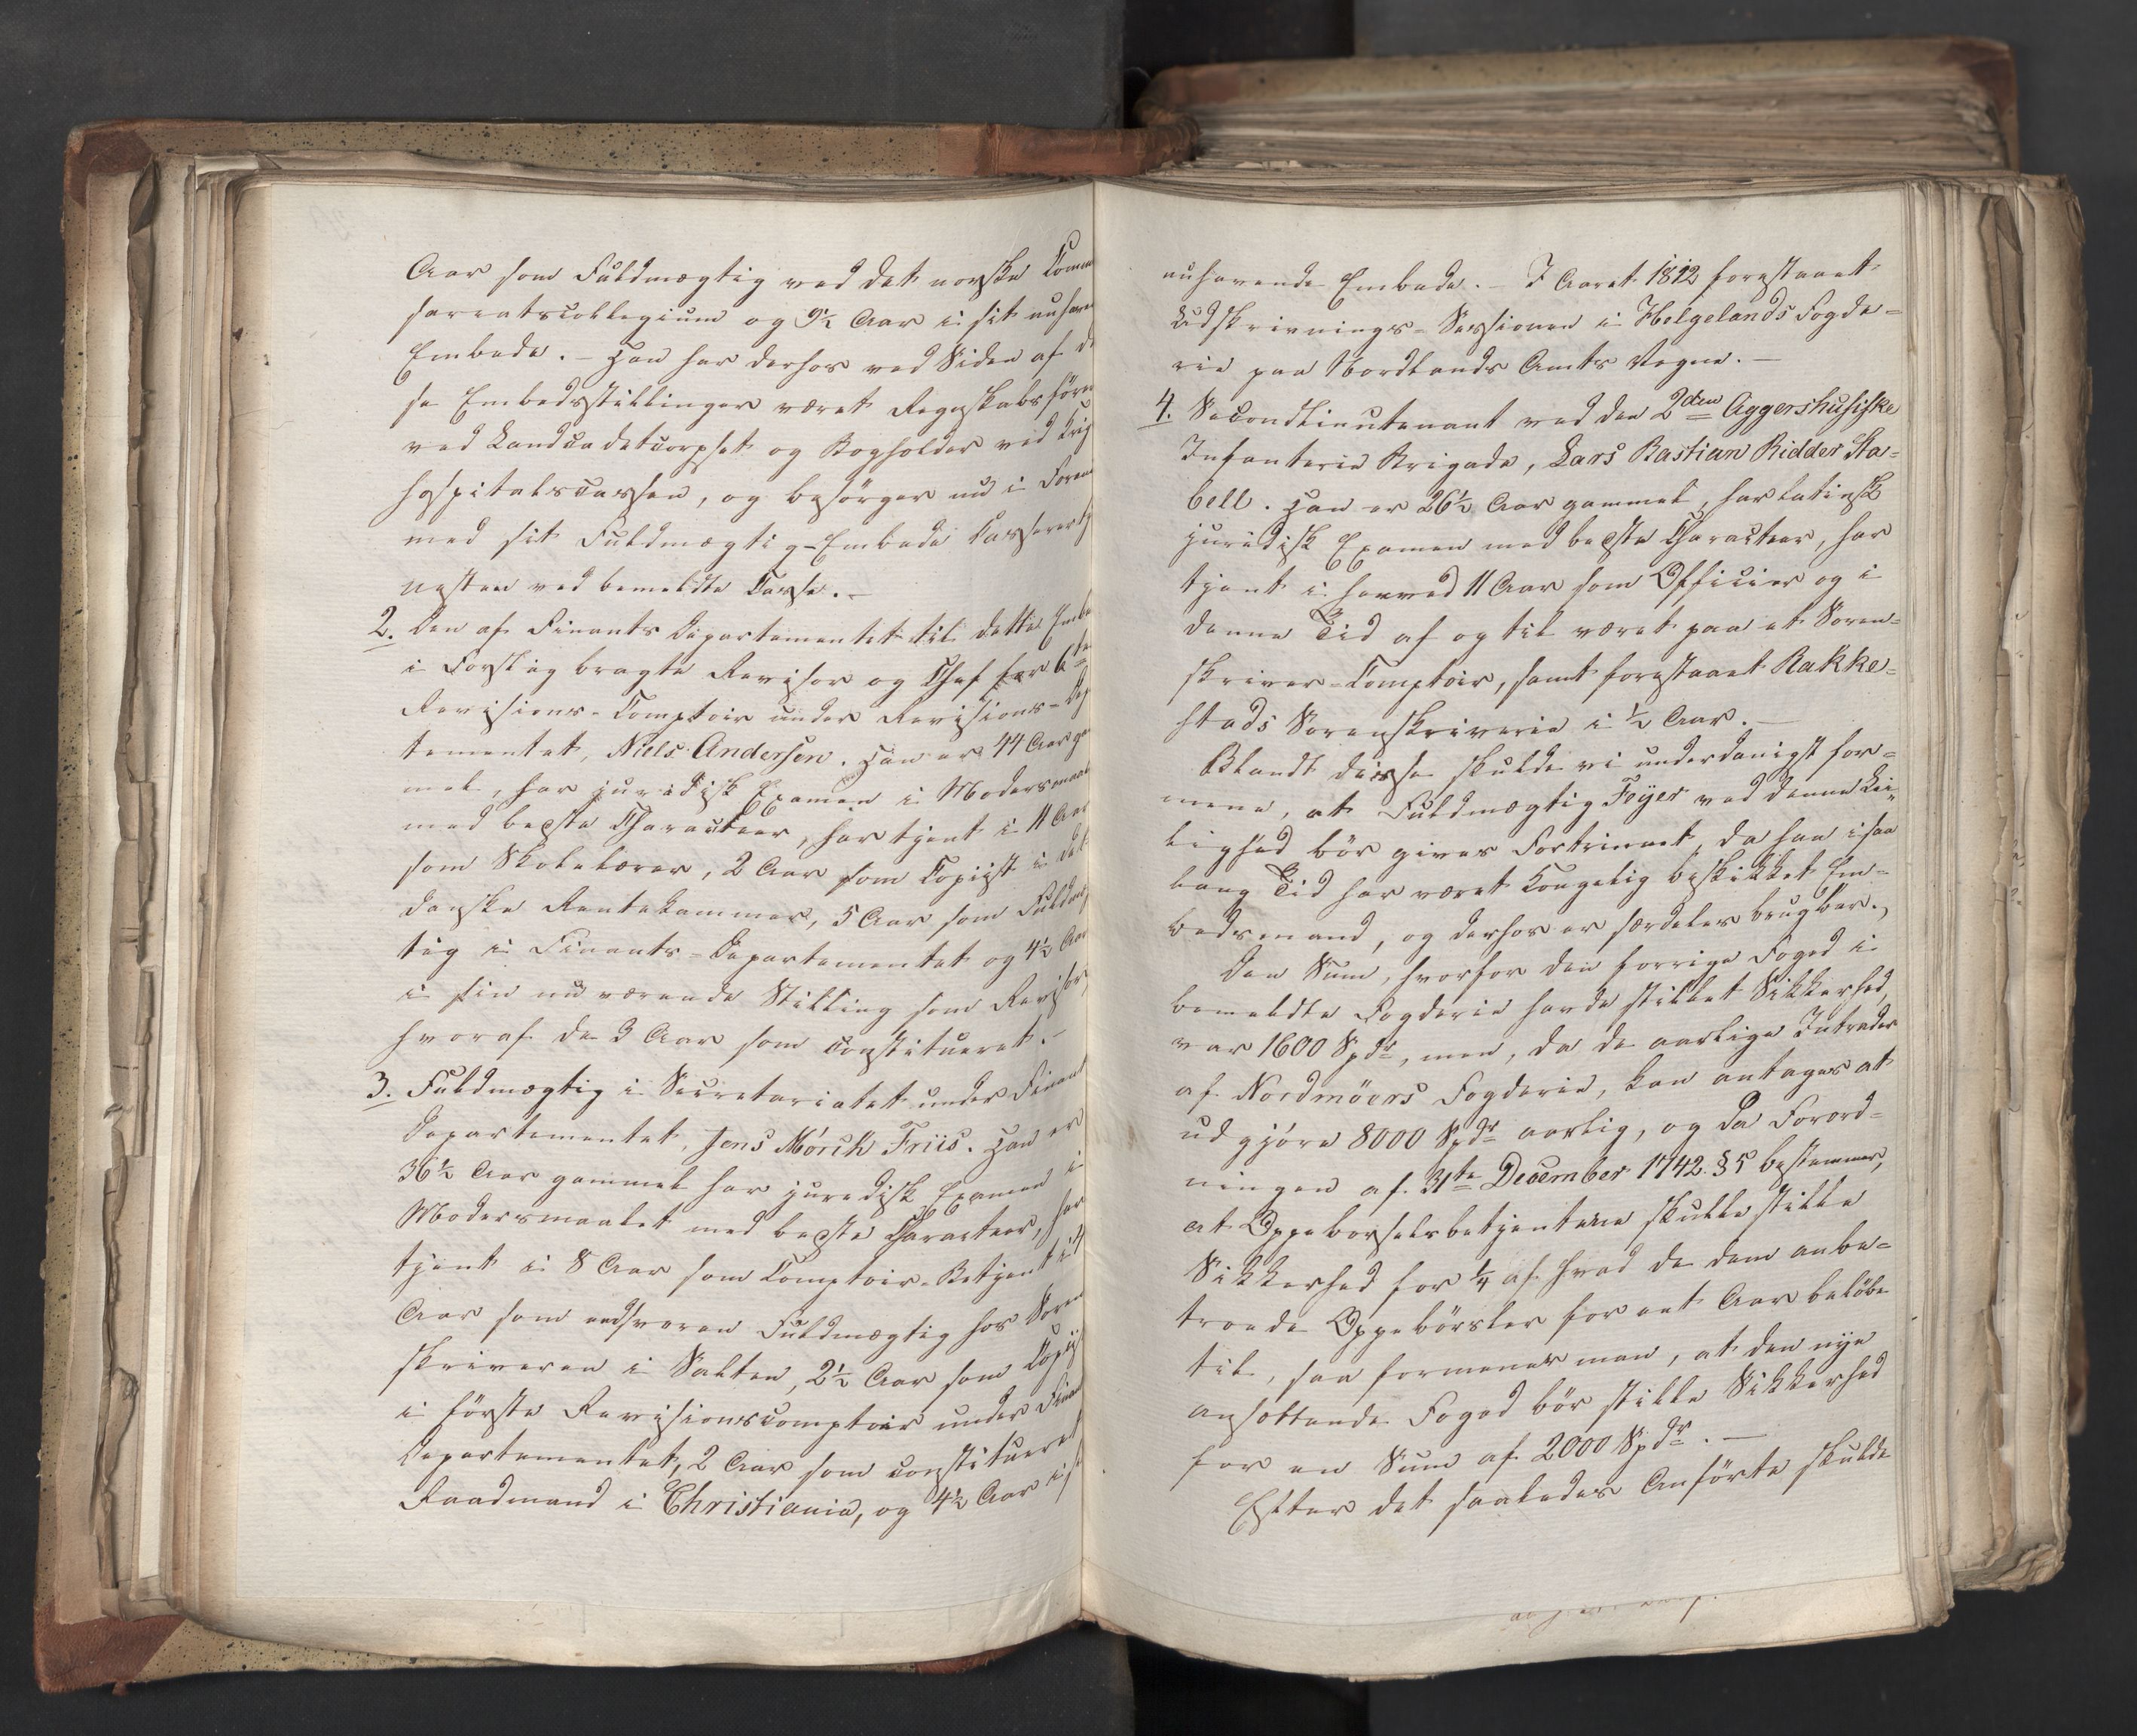 Aar som Fuldmægtig ved det norske Comm
sariatscollegium og 9½ Aar i sit nuhave
Embede. – Han har derhos ved Siden af di
se Embedsstillinger været Regnskabsföre
ved Landcadetcorpset og Bogholder ved Krig
hospitalscassen, og besörger nu i Foren
med sit Fuldmægtig-Embede Cassererti
nesten ved bemeldte Casse. –
2. Den af Finants Departementet til dette Embe
i Forslag bragte Revisor og Chef for 6te
Revisions-Comptoir under Revisions-Dep
tementet, Niels Andersen. Han er 44 Aar ga
mel, har juridisk Examen i Modersmaal
med beste Characteer, har tjent i 11 Aar
som Skolelærer, 2 Aar som Copiist i det
danske Rentekammer, 5 Aar som Fuldmæg
tig i Finants-Departementet og 4½ Aar
i sin nuværende Stilling som Revisor,
hvoraf de 3 Aar som constitueret. –
3. Fuldmægtig i Secretariatet under Finant
Departementet, Jens Mörch Friis. Han er
36½ Aar gammel har juridisk Examen i
Modersmaalet med beste Characteer, har
tjent i 8 Aar som Comptoir-Betjent i
Aar som eedsvoren Fuldmægtig hos Soren
skriveren i Salten, 2½ Aar som Copiist
i förste Revisionscomptoir under Finan
Departementet, 2 Aar som constitueret
Raadmand i Christiania, og 4½ Aar i s
nuhavende Embede. – I Aaret 1812 forestaaet
Udskrivnings-Sessionen i Helgelands Fogde-
rie paa Nordlands Amts Vegne. –
4. Secondlieutenant ved den 2den Aggershusiske
Infanterie Brigade, Lars Bastian Ridder Sta-
bell. Han er 26½ Aar gammel, har latinsk
juridisk Examen med beste Characteer, har
tjent i henved 11 Aar som Officier og i
denne Tid af og til været paa et Soren-
skriver-Comptoir, samt forestaaet Rakke-
stads Sorenskriverie i ½ Aar. –
Blandt disse skulde vi underdanigst for-
mene, at Fuldmægtig Feyer ved denne Lei-
lighed bör gives Fortrinnet, da han i saa
lang Tid har været Kongelig beskikket Em-
bedsmand, og derhos er særdeles brugbar. –
Den Sum, hvorfor den forrige Foged i
bemeldte Fogderie havde stillet Sikkerhed,
var 1600 Spdr, men, da de aarlige Intrader
af Nordmöers Fogderie, kan antages at
udgjöre 8000 Spdr aarlig, og da Forord-
ningen af 31te December 1742 § 5 bestemmer,
at Oppeborselsbetjentene skulle stille
Sikkerhed for ¼ af hvad de dem anbe-
troede Oppebörsler for eet Aar belöbe
til, saa formener man, at den nye
ansættende Foged bör stille Sikkerhed
for en Sum af 2000 Spdr. –
Efter det saaledes Anförte skulde